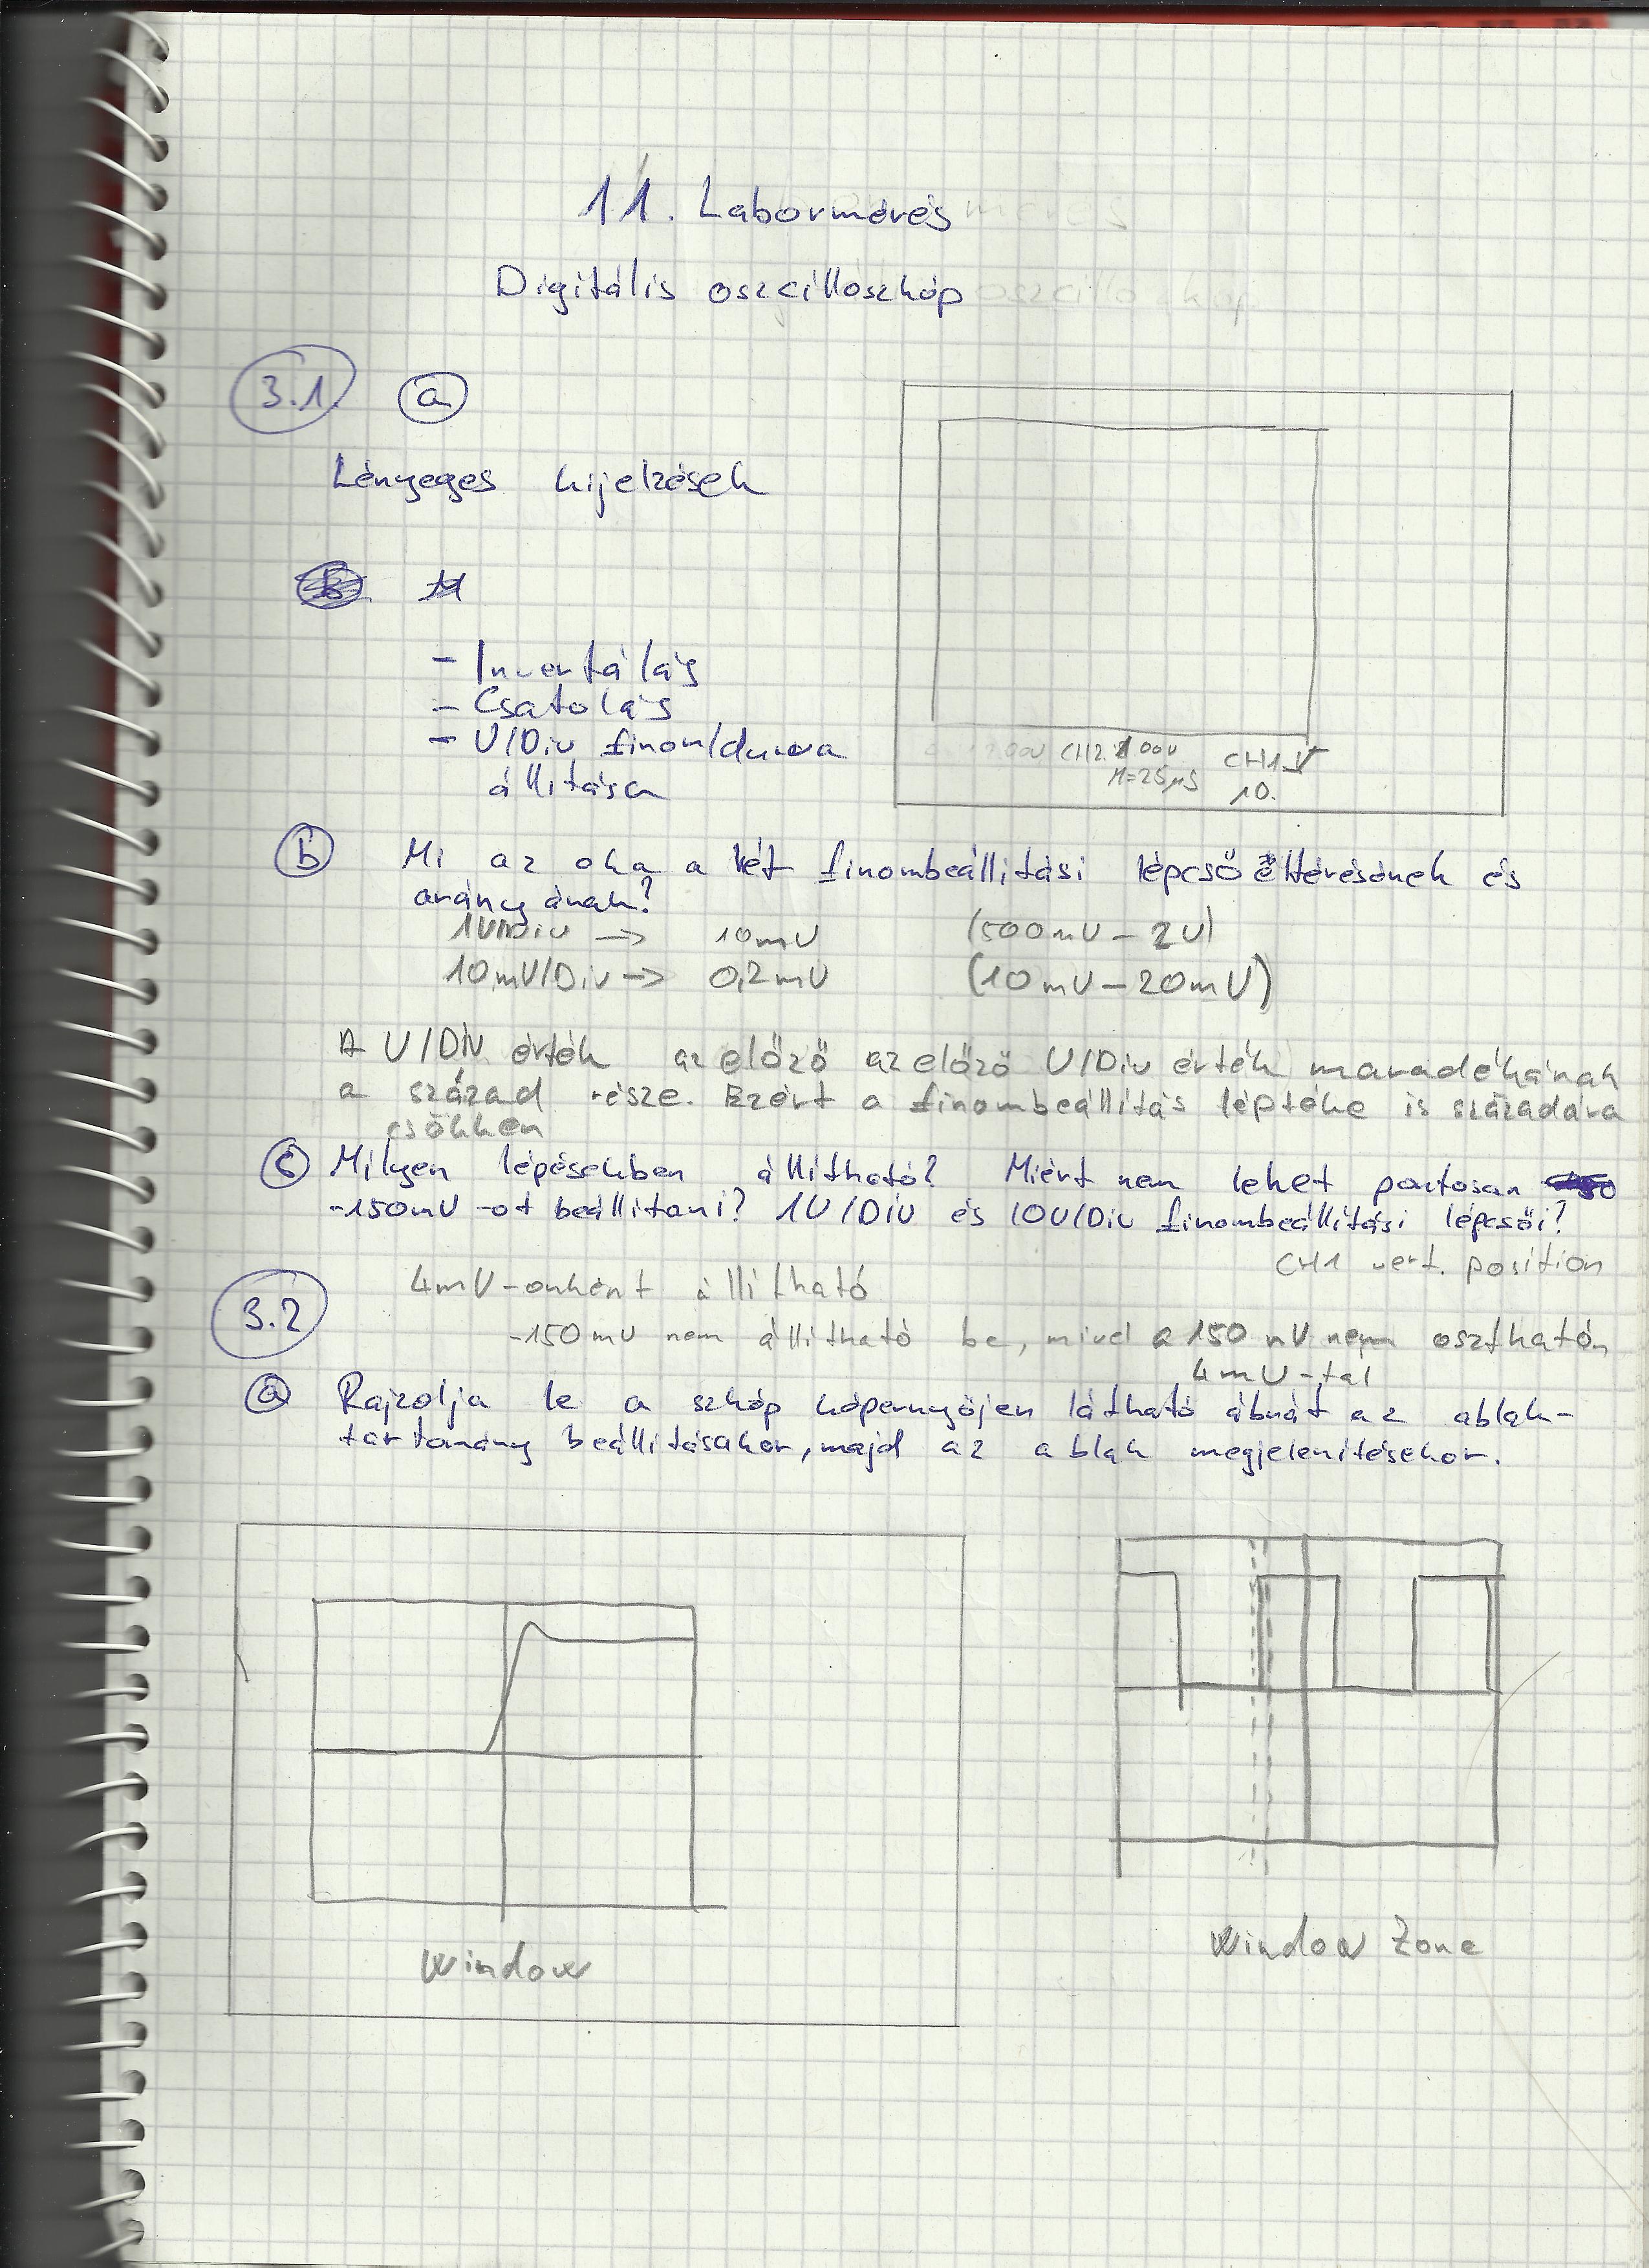 11. Labormérés
Digitális oszcilloszkóp
3.1. a
Lényeges kijelzések
- Invertálás
- Csatolás
- U/Div finom/durva
állítása
CH2. 1 00V
M=25µS
CH1
10.
b Mi az oka a két finombeállítási lépcső eltérésének és
arányának?
1V/Div -> 10mV (500mV - 2V)
10mV/Div -> 0,2mV (10mV - 20mV)
A U/Div érték az előző az előző U/Div érték maradékának
a század része. Ezért a finombeállítás léptéke is századára
csökken
c Milyen lépésekben állítható? Miért nem lehet pontosan
-150mV-ot beállítani? 1V/Div és 10V/Div finombeállítási lépcsői?
CH1 vert. position
4mV-onként állítható
3.2
-150mV nem állítható be, mivel a 150 mV nem osztható
4mV-tal
a Rajzolja le a szkóp képernyőjén látható ábrát az ablak-
tartomány beállításakor, majd az ablak megjelenítésekor.
Window
Window Zone